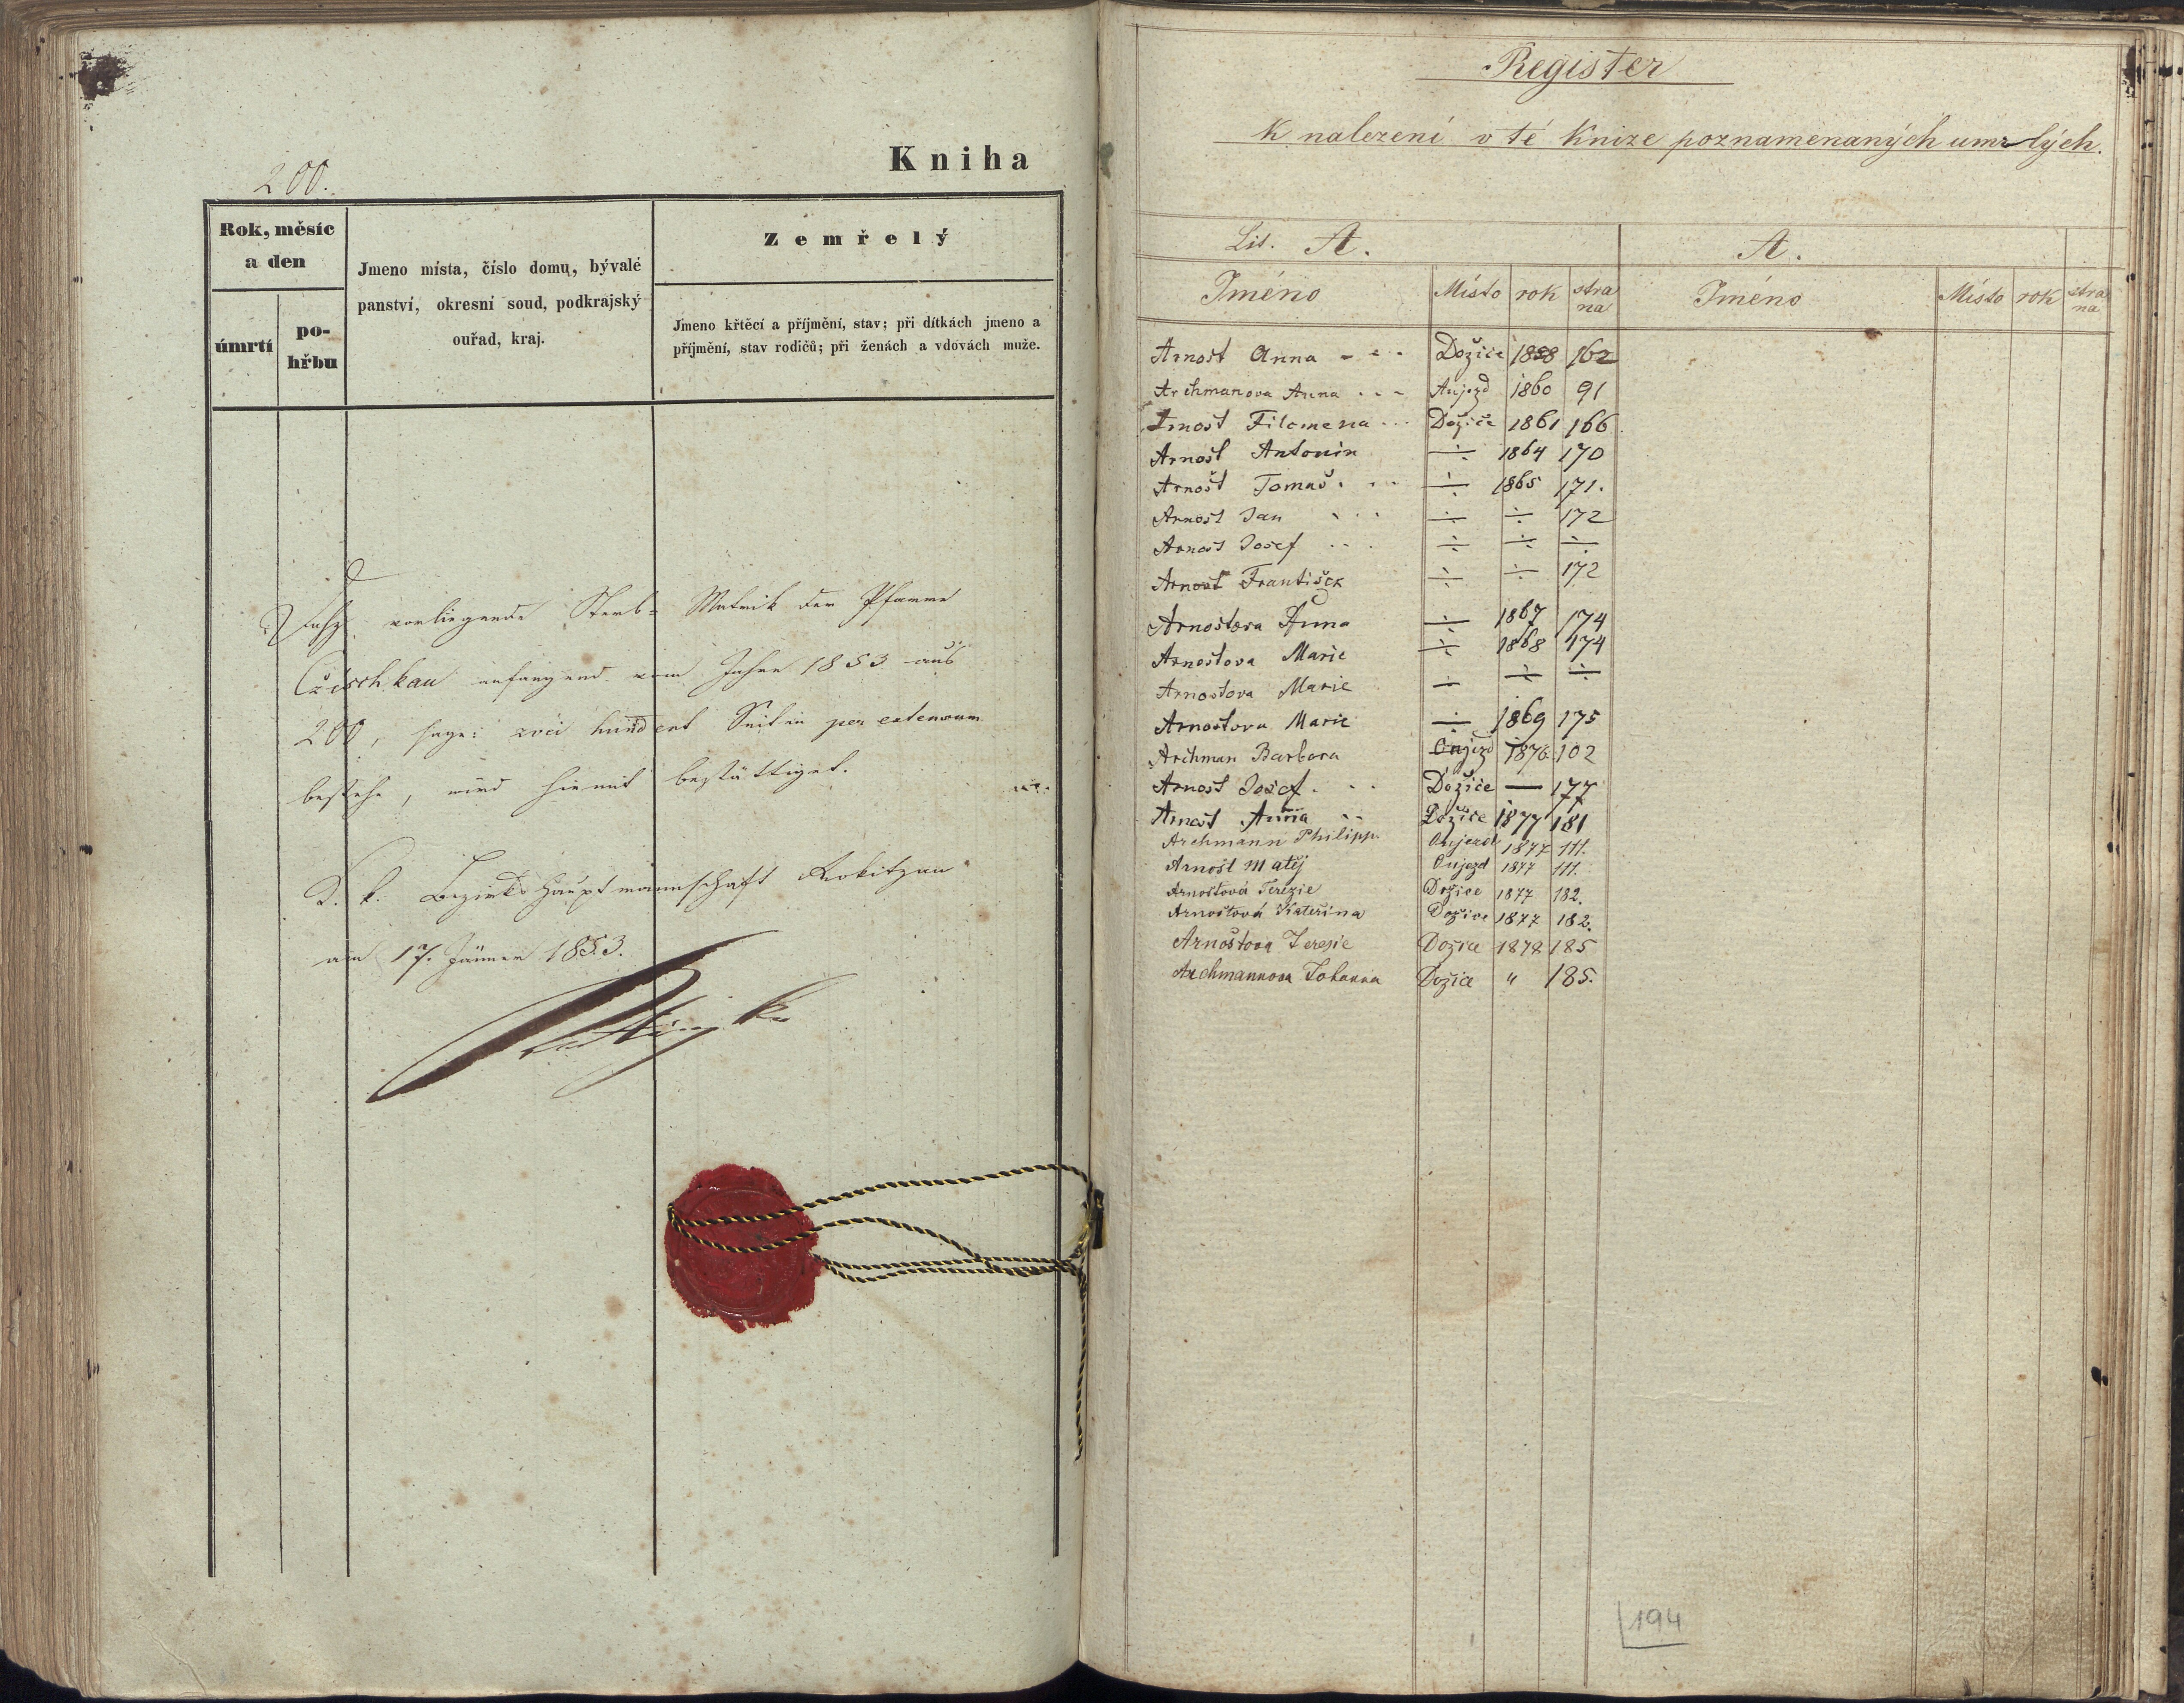 200.
Kniha
Rok, měsíc
a den
úmrtí
po-
hřbu
Jmeno místa, číslo domu, bývalé
panství, okresní soud, podkrajský
ouřad, kraj.
Zemřelý
Jmeno křtěcí a příjmění, stav; při dítkách jmeno a
příjmění, stav rodičů; při ženách a vdovách muže.
Daß vorliegende Sterb- Matrik der Pfarre
Čzischkau anfangend vom Jahre 1853 aus
200, sage: zwei hundert Seiten per extensum
bestehe, wird hiemit bestättiget.
K. k. Bezirkshauptmannschaft Rokitzan
am 17. Jänner 1853.
Register
K nalezení v té Knize poznamenaných umrlých.
Lit. A. A.
Jméno Místo rok strana Jméno Místo rok strana
Arnošt Anna - - - Dožice 1858 162
Archmanova Anna . . - Aujezd 1860 91
Arnošt Filomena . . . Dožice 1861 166
Arnošt Antonin ÷ 1864 170
Arnošt Tomaš . . . ÷ 1865 171.
Arnošt Jan . . . ÷ ÷ 172
Arnošt Josef . . . ÷ ÷ ÷
Arnošt František ÷ ÷ 172
Arnoštova Anna ÷ 1867 174
Arnoštova Marie ÷ 1868 174
Arnoštova Marie ÷ ÷ ÷
Arnoštova Marie ÷ 1869 175
Archman Barbora Oujezd 1876 102
Arnošt Josef . . . Dožice — 177
Arnošt Anna . . Dožice 1877 181
Archmann Philipp Oujezd 1877 111.
Arnošt Matěj Oujezd 1877 111.
Arnoštová Terezie Dožice 1877 182.
Arnoštová Kateřina Dožice 1877 182.
Arnoštova Terezie Dožice 1878 185
Archmannova Johanna Dožice " 185.
194